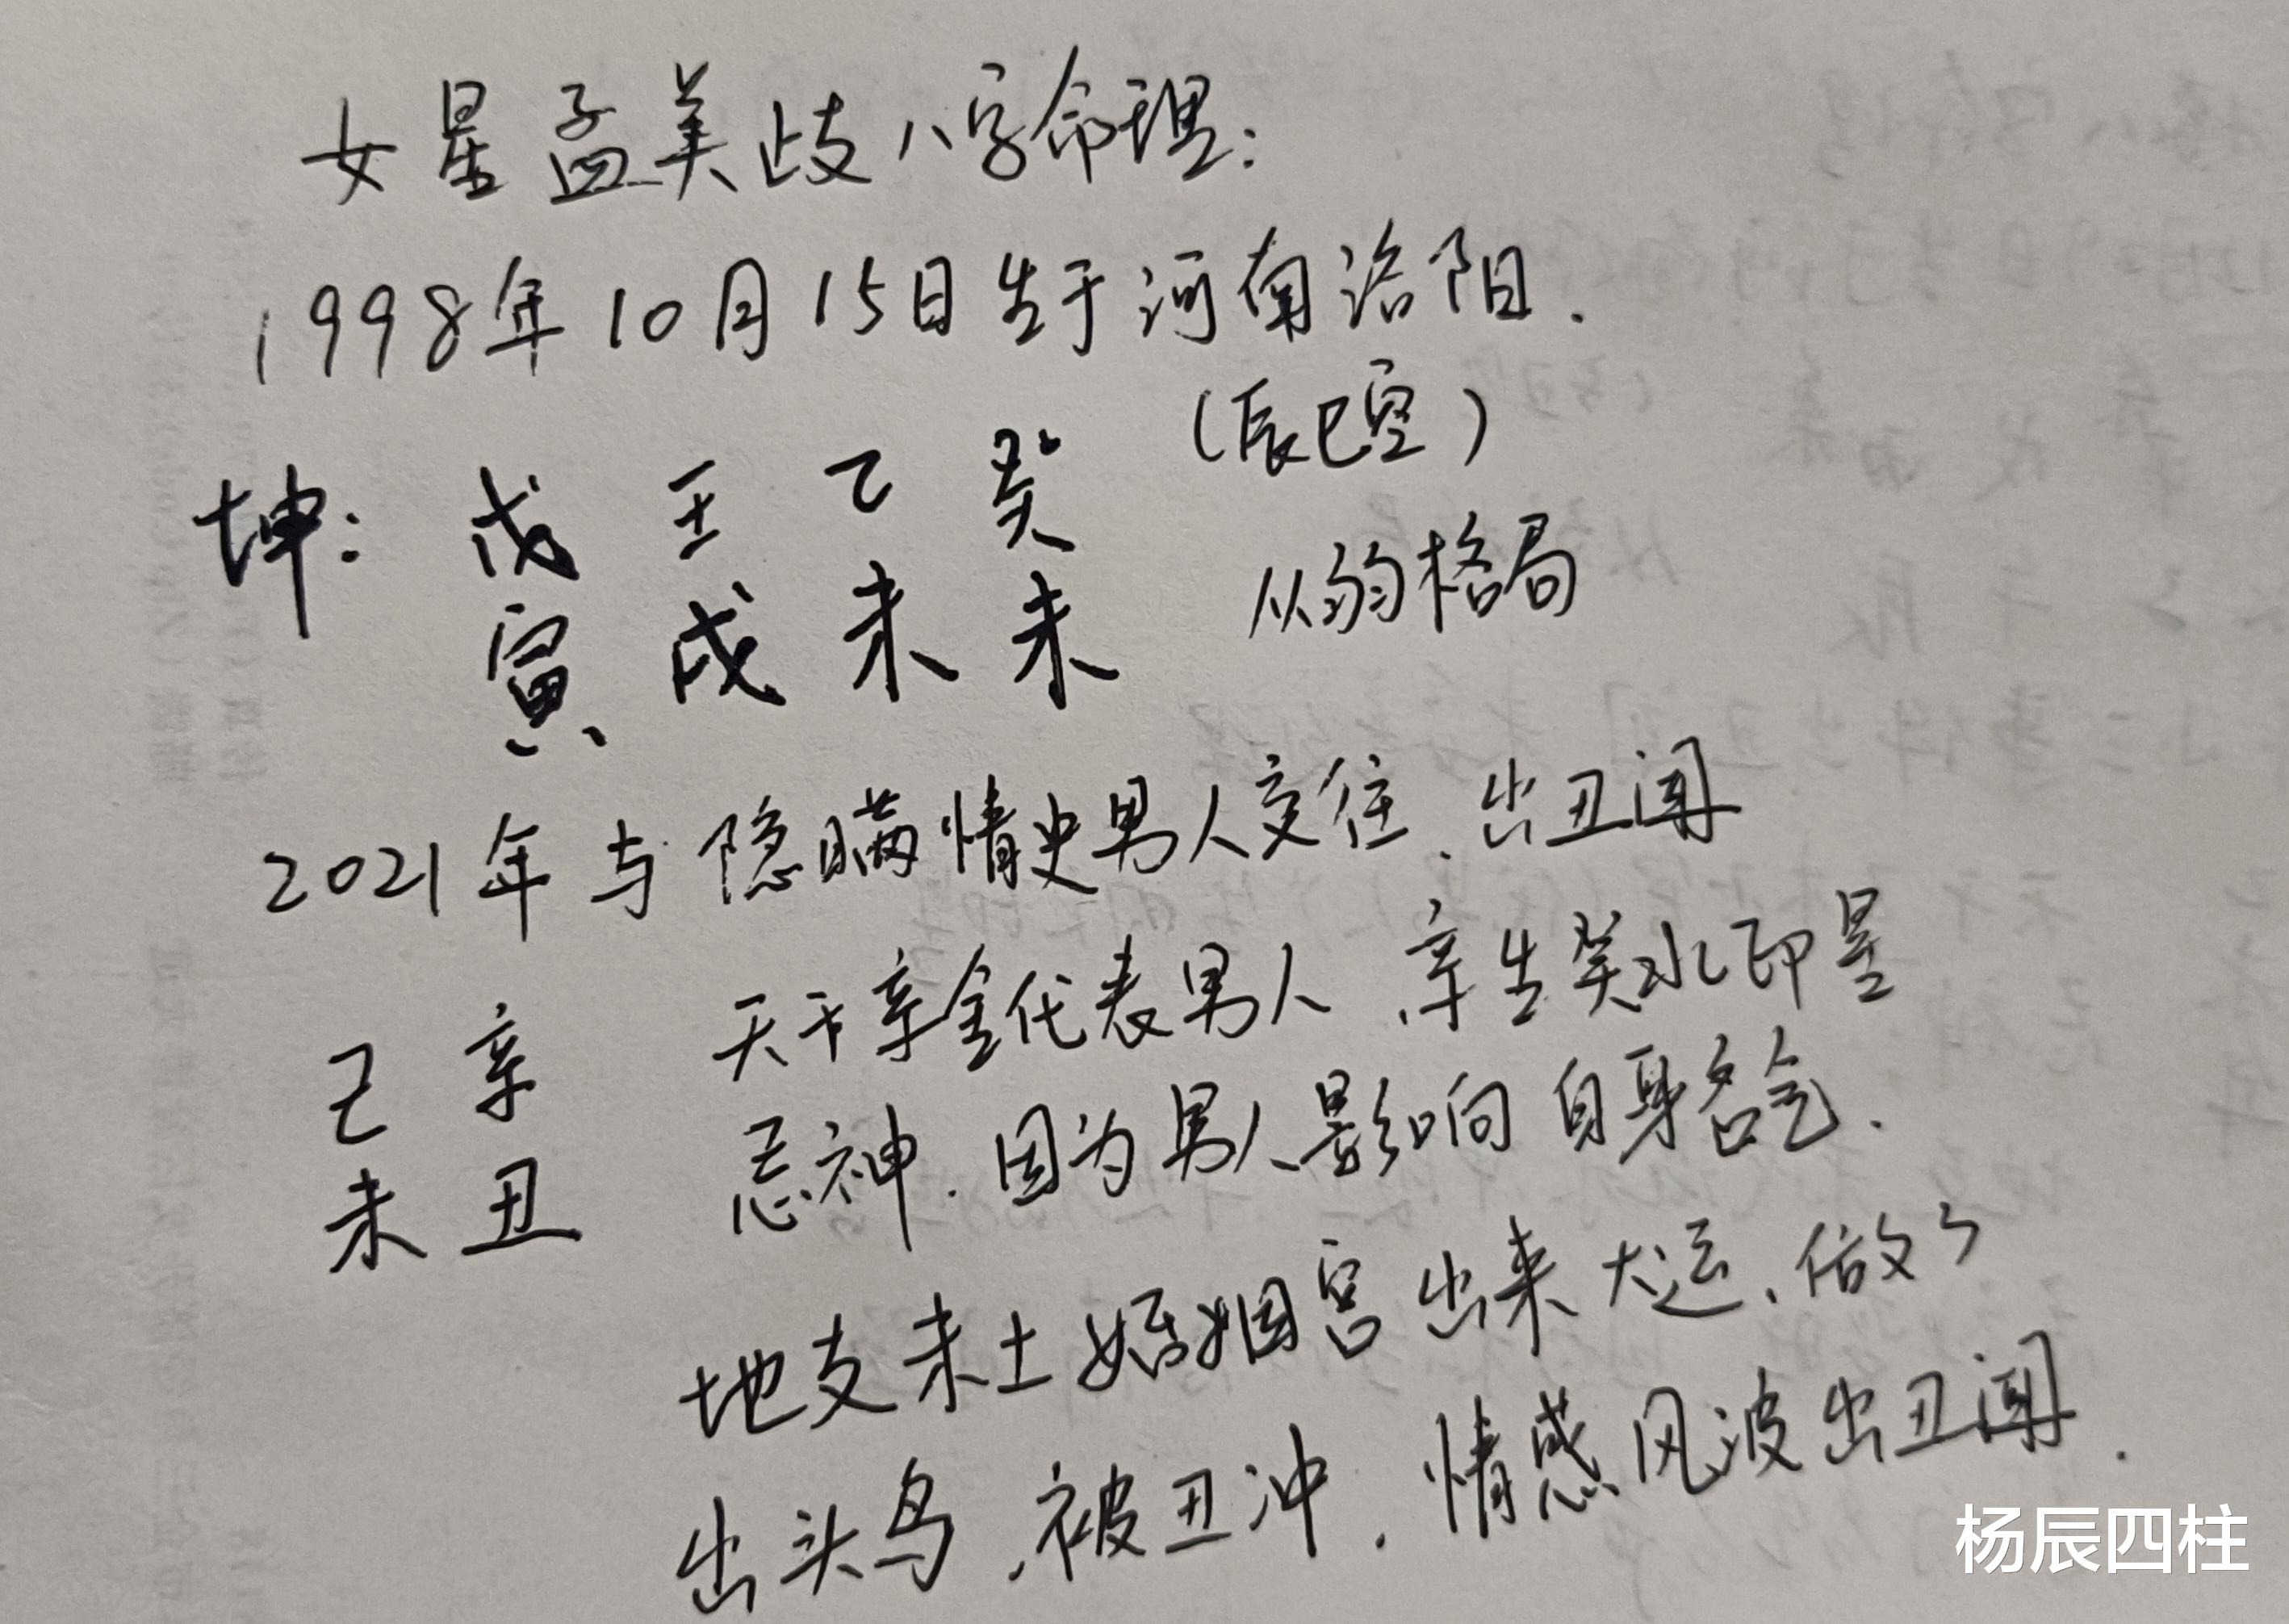 女星孟美歧八字命理:
1998年10月15日生于河南洛阳.
(辰巳空)
坤: 戊 壬 乙 癸
寅 戌 未 未 从弱格局
2021年与隐瞒情史男人交往.出丑闻
天干辛金代表男人.辛生癸水印星
己 辛
忌神.因为男人影响自身名气.
未 丑
地支未土婚姻宫出来大运、做了
出头鸟.被丑冲.情感风波出丑闻.
杨辰四柱